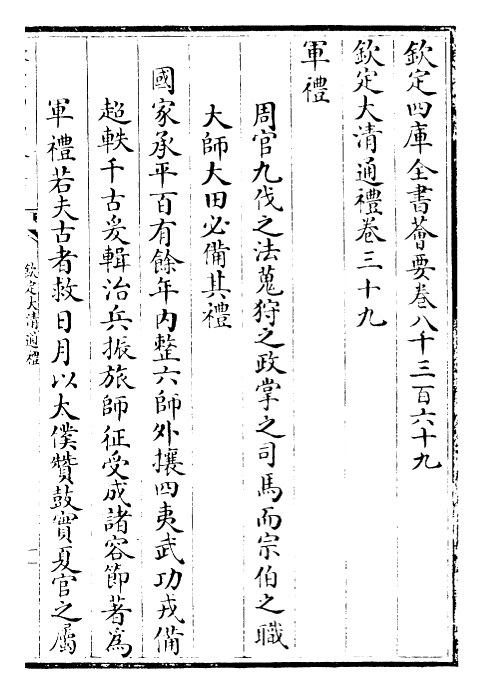 欽定四庫全書薈要卷八千三百六十九
欽定大清通禮卷三十九
軍禮
周官九伐之法蒐狩之政掌之司馬而宗伯之職
大師大田必備其禮
國家承平百有餘年内整六師外攘四夷武功戎備
超軼千古爰輯治兵振旅師征受成諸容節著為
軍禮若夫古者救日月以太僕贊鼓實夏官之屬
欽定大清通禮
一